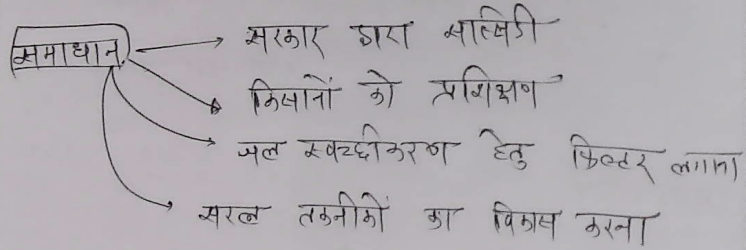 समाधान
सरकार द्वारा सब्सिडी
किसानों को प्रशिक्षण
जल स्वच्छीकरण हेतु फिल्टर लगाना
सरल तकनीकों का विकास करना